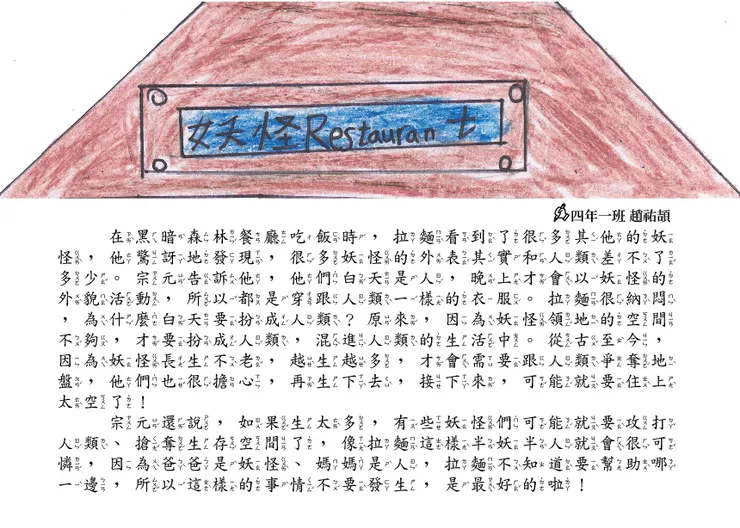 妖怪Restaurant
四年一班 趙祐頡
在黑暗森林餐廳吃飯時，拉麵看到了很多其他的妖
怪，他驚訝地發現，很多妖怪的外表其實和人類差不了
多少。宗元告訴他，他們白天是人，晚上才會以妖怪的
外貌活動，所以都是穿跟人類一樣的衣服。拉麵很納悶
，為什麼白天要扮成人類？原來，因為妖怪領地的空間
不夠，才要扮成人類，混進人類的生活中。從古至今，
因為妖怪長生不老，越生越多，才會需要跟人類爭奪地
盤，他們也很擔心，再生下去，接下來，可能就要住上
太空了！
宗元還說，如果生太多，有些妖怪們可能就要攻打
人類、搶奪生存空間了，像拉麵這樣半妖半人就會很可
憐，因為爸爸是妖怪、媽媽是人，拉麵不知道要幫助哪
一邊，所以這樣的事情不要發生，是最好的啦！